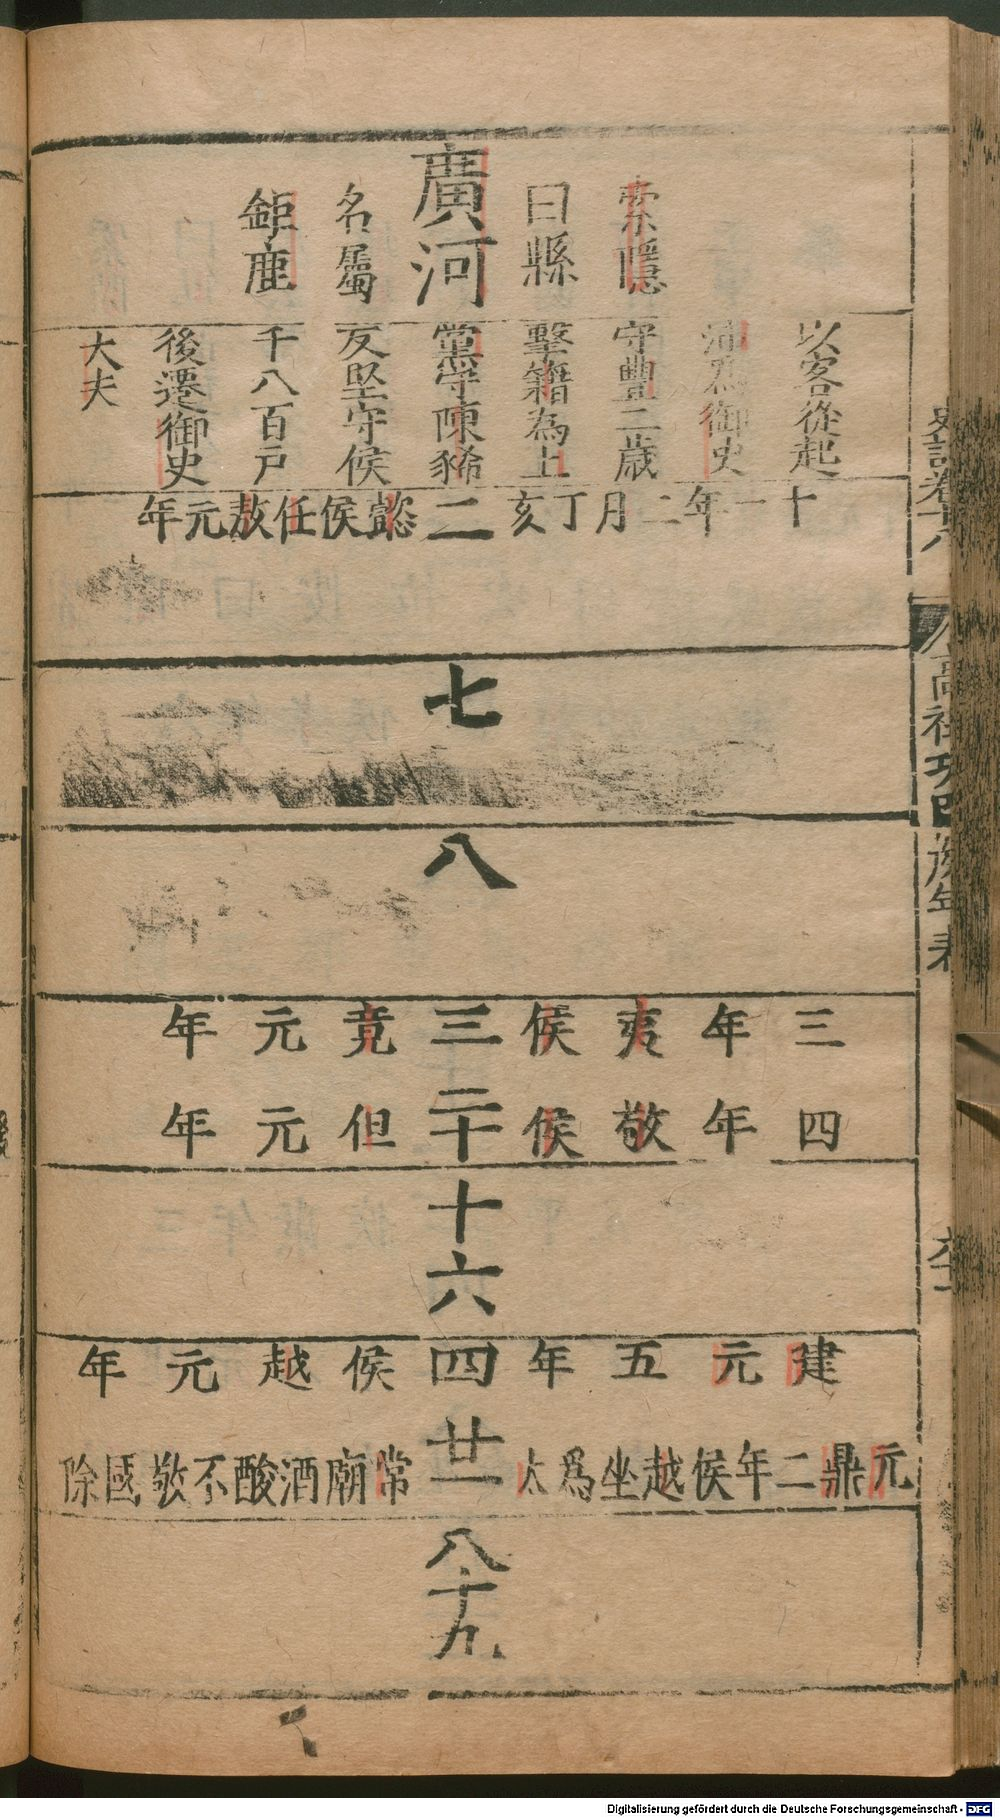 廣河
索隱
曰縣
名屬
鉅鹿
以客從起
沛為御史
守豐二歳
擊籍為上
黨守陳豨
反堅守侯
千八百戶
後遷御史
大夫
十一年二月丁亥
二
懿侯任敖元年
七
八
三年夷侯
三
竟元年
四年敬侯
二十
但元年
十六
建元五年
四
侯越元年
元鼎二年侯越坐爲太
廿一
常廟酒酸不敬國除
八十九
史記卷十八
高祖功臣侯年表
Digitalisierung gefördert durch die Deutsche Forschungsgemeinschaft - DFG